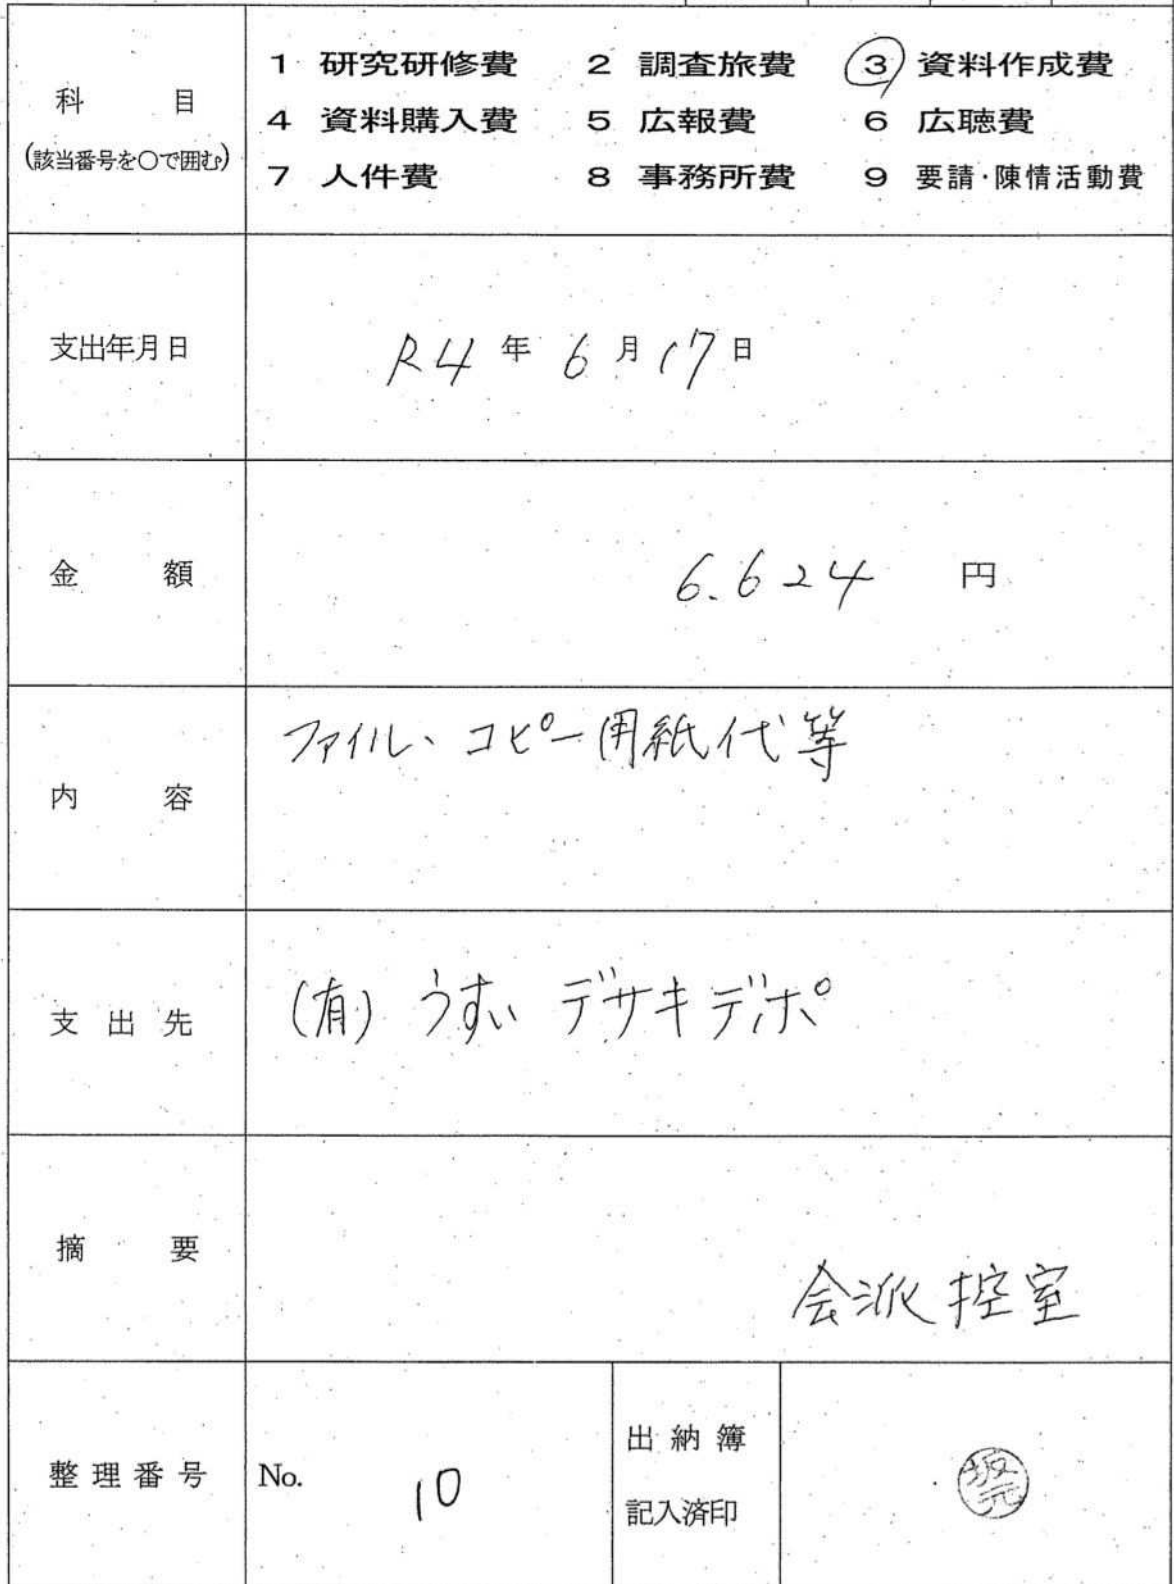 科目
(該当番号を○で囲む)
1 研究研修費 2 調査旅費 3 資料作成費
4 資料購入費 5 広報費 6 広聴費
7 人件費 8 事務所費 9 要請・陳情活動費
支出年月日
R4年6月17日
金額
6.624円
内容
ファイル、コピー用紙代等
支出先
(有)うすい デサキデポ
摘要
会派控室
整理番号
No. 10
出納簿
記入済印
坂元